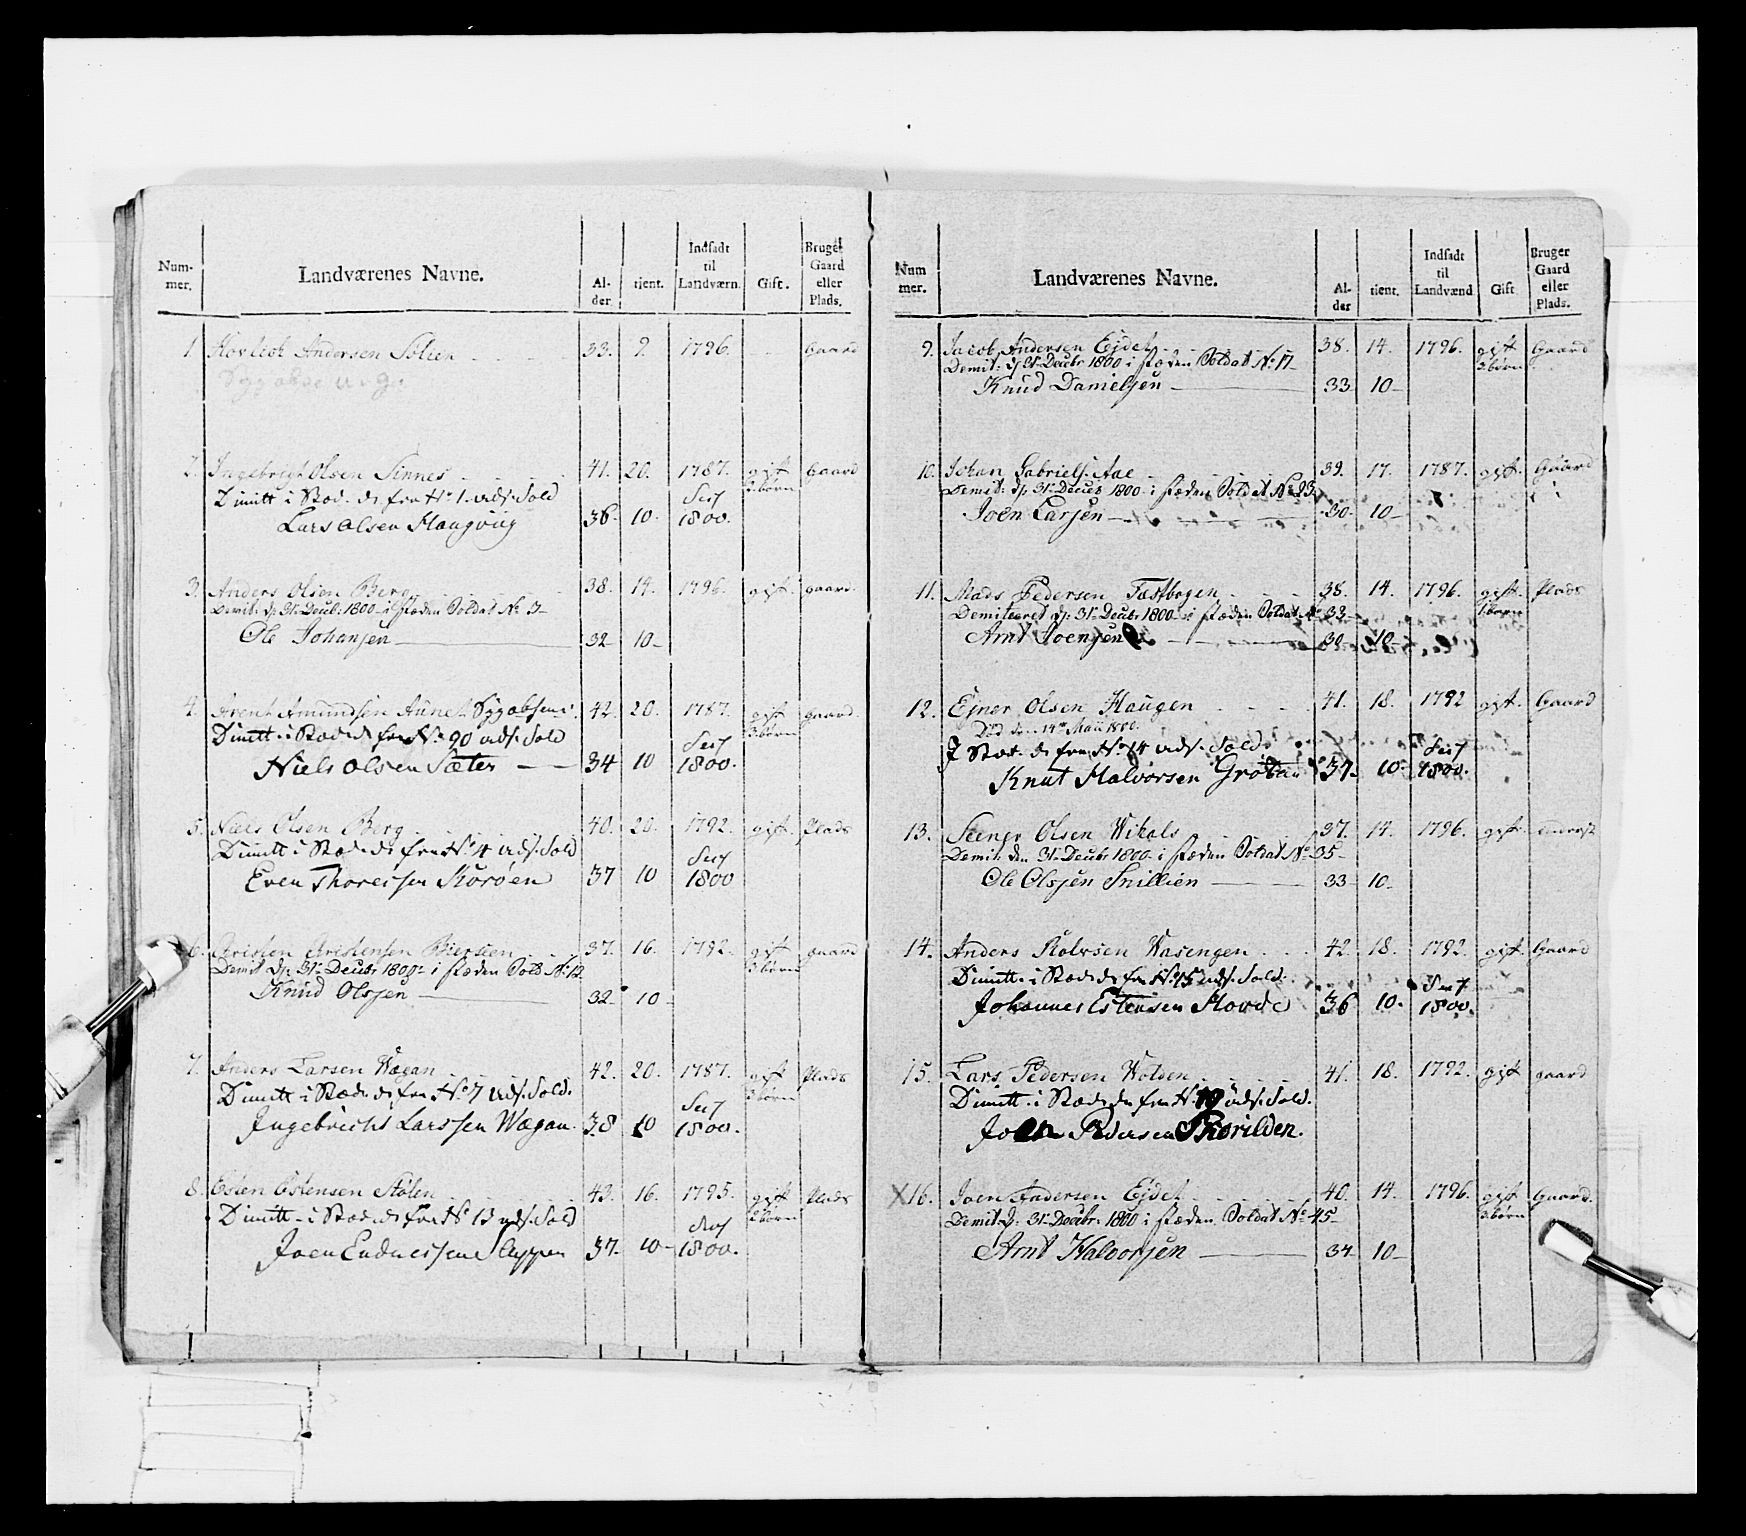 Num- mer. Landværenes Navne. Al- der. tient. Indsadt til Landværn. Gift. Bruger Gaard eller Plads.
1. Andersen Solien 33. 9. 1796. Gaard
2. Ingebrigt Olsen Sinnes 41. 20. 1787. gift 3 børn Gaard
Dimitt i Stæd. d: fra No 1. vids. Sold
Lars Olsen Haugvüg 36. 10. 1800.
3. Anders Olsen Berg 38. 14. 1796. gift. gaard.
Demit: d. 31te Decbr. 1800 i stæden Soldat No 3-
Ole Johansen 32 10-
4. Arent Amundsen Aune 42. 20. 1787. gift 3 børn Gaard.
Dimitt i Stæd. d: fra No 90 vids. Sold
Niels Olsen Sæter 34 10 1800.
5. Niels Olsen Berg 40. 20. 1792. gift. Plads
Dimitt i Stæd. d: fra No 4 vids. Sold
Even Thoresen Korøen 37 10 1800
6. Cristen Cristensen Biertien 37. 16. 1792. gift 3 børn gaard
Demit. d. 31te Decbr. 1800 i stæden Sold. No 12
Knud Olsen 32 10-
7. Anders Larsen Wægan 42. 20. 1787. gift 3 børn Plads
Dimitt i Stæd. d: fra No 7 vids. Sold.
Ingebricht Larssen Wægan. 38 10 1800.
8. Esten Estensen Stølen 43. 16. 1795. gift 2 børn Plads
Dimitt i Stæd. d: fra No 13 vids. Sold
Joen Endressen Sleppen 37. 10- 1800.
Num mer. Landværenes Navne. Al- der tient. Indsadt til Landværnd Gift Bruger Gaard eller Plads.
9. Jacob Andersen Ejdet 38. 14. 1796. gift 3 børn Gaard
Demit: d. 31te Decbr 1800 i stæden Soldat No: 17-
Knud Danielsen 33 10-
10. Johan Gabriels. Aae 39. 17. 1787. gift. Gaard
Demit: d. 31te Decbr 1800 i stæden Soldat No 23.
Joen Larsen 30. 10-
11. Mads Pedersen Fæstbogen 38. 14. 1796. gift. 1 barn Plads
Demitteret d. 31te Decbr 1800 i stæden Soldat No 32
Arnt Joensen 30 10-
12. Ejner Olsen Haugen 41. 18. 1792 gift. Gaard
Død den 14de Maii 1800.
I Stæd. d: fra No 14 vids. Sold.
Knut Halvorsen Grøtan 37. 10. 1800.
13. Olsen Wikals 37. 14. 1796. gift.
Demit. den 31te Decbr 1800 i stæden Soldat No 35-
Ole Olsen Snillien 33 10-
14. Anders Rolvsen Wasengen 42. 18. 1792. gift. Gaard
Dimitt. i Stæd. d: fra No 15 vids. Sold.
Johannes Estensen Hovde 36 10. 1800.
15. Lars Pedersen Wolden 41. 18. 1792. gift gaard
Dimitt. i Stæd. d: fra No. 19 vids. Sold.
Joen Pedersen Skorilden.
X16. Joen Andersen Ejdet 40. 14. 1796. gift 3 børn Gaard.
Demit. d. 31te Decbr. 1800 i stæden Soldat No 45-
Arnt Halvorsen 34 10-